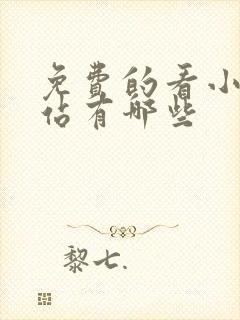 免费的看小
佔有哪些
黎七.